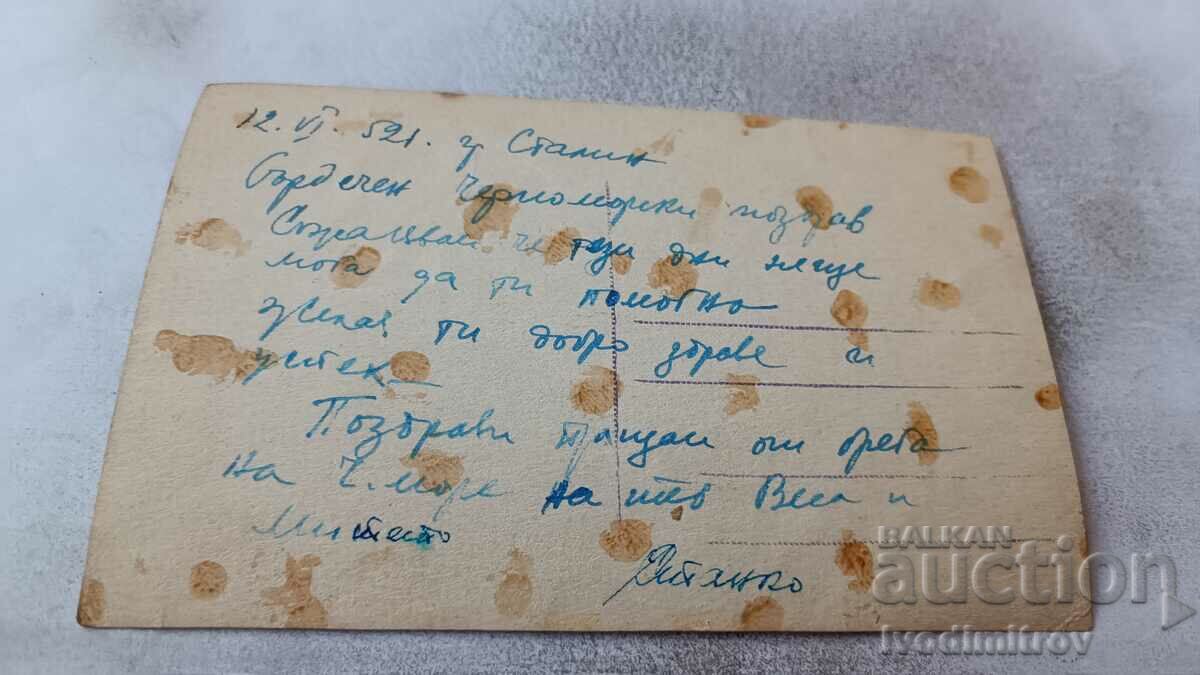 12. VI. 52г. гр Сталин
Сърдечен Черноморски поздрав
Съжалявам че тези дни неще
мога да ти помогна
желая ти добро здраве и
успех
Поздрави пращам от брега
на Ч. море на теб Веси и
Митето
Станко
BALKAN
auction
Ivodimitrov